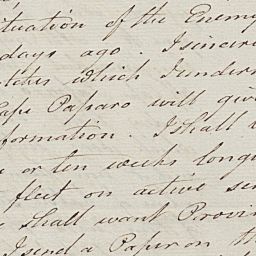 ituation of the Enemy
days ago. I sincere
which I under
Cape Passaro will giv
formation. I shall
or ten weeks long
fleet on active se
shall want Provi
I send a Paper on th